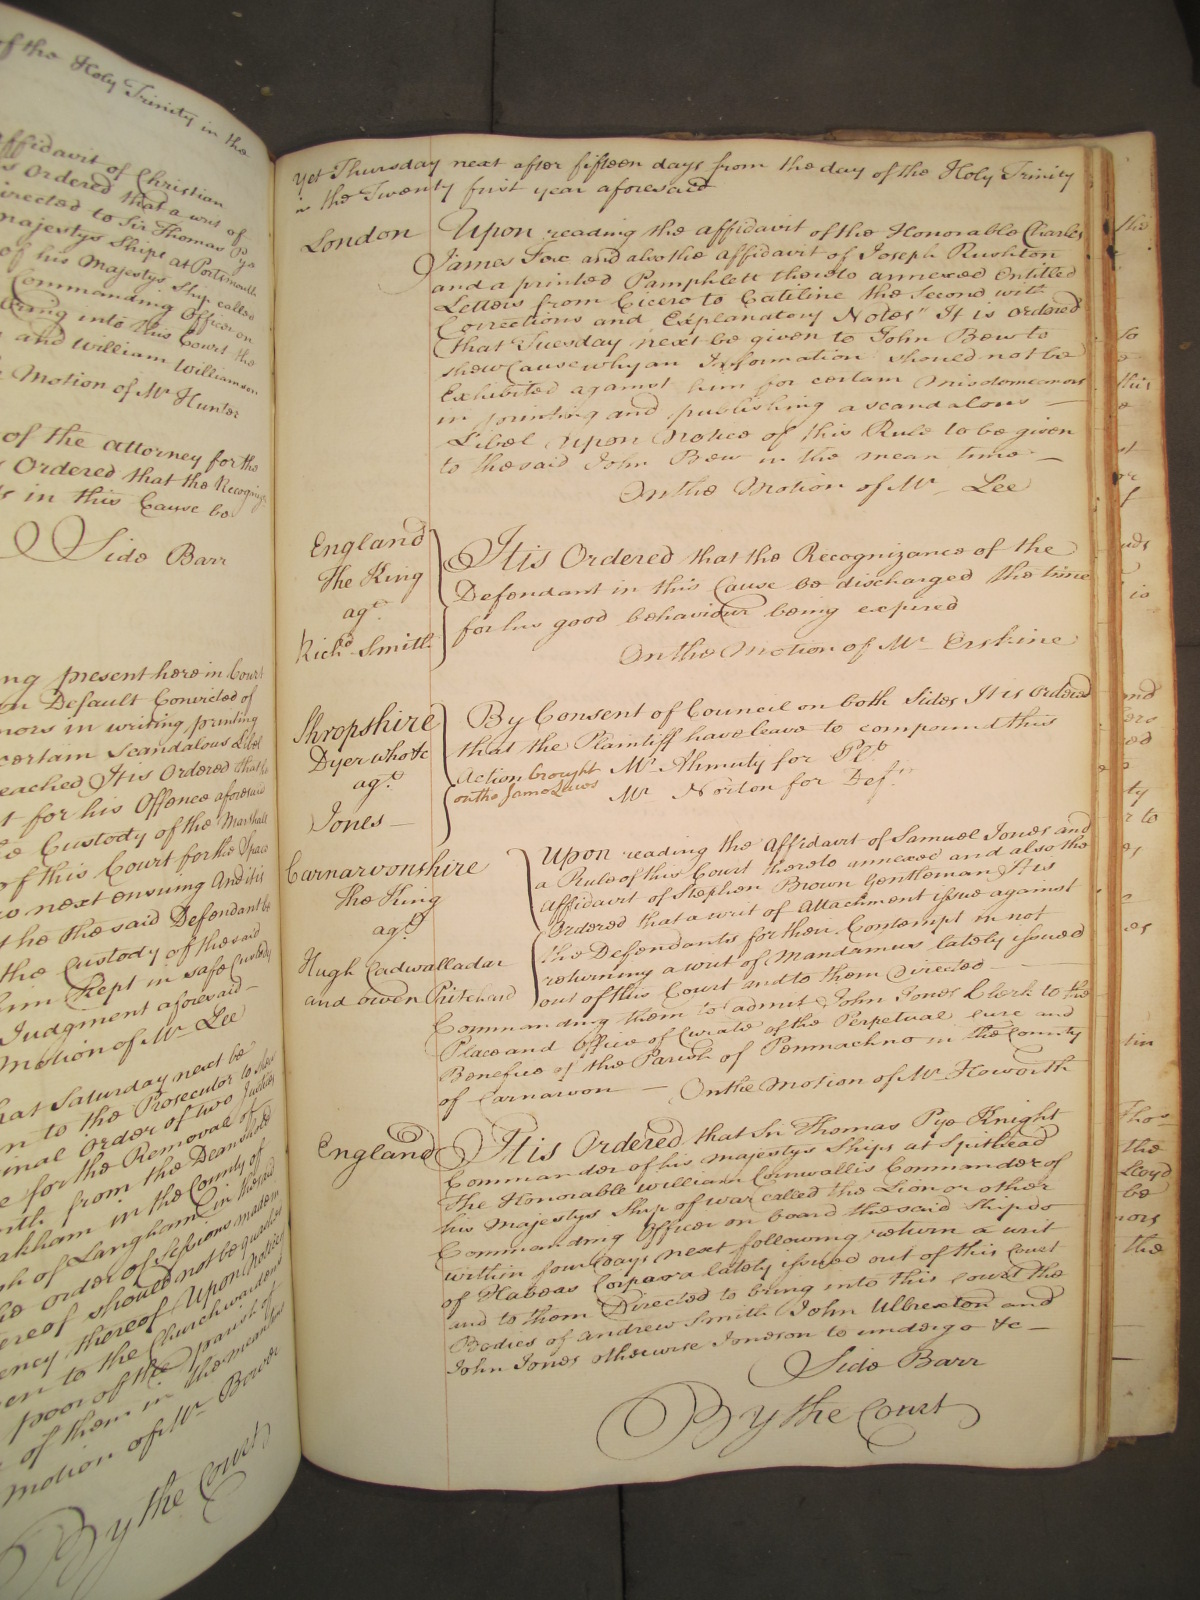 of the Holy Trinity in the
affidavit of Christian
Ordered that a writ of
directed to Sir Thomas Pye
majestys Ships at Portsmouth
of his Majestys Ship called
Commanding Officer on
bring into this Court the
and William Williamson
Motion of Mr Hunter
of the attorney for the
Ordered that the Recogniz
in this Cause be
Side Barr
present here in Court
Default Convicted of
in writing printing
certain Scandalous Libel
It is Ordered that he
for his Offence aforesaid
Custody of the Marshall
of this Court for the Space
next ensuing And it is
the said Defendant be
the Custody of the said
him kept in safe Custody
Judgment aforesaid
Motion of Mr Lee
that Saturday next be
to the Prosecutor to shew
Order of two Justices
for the Removal of
from the Dean hold
in the County of
of Langham in the said
order of Sessions made in
should not be quashed
thereof Upon notice
to the Churchwardens
poor of the parish of
of them in the mean time
motion of Mr Bower
By the Court
yet Thursday next after fifteen days from the day of the Holy Trinity
in the Twenty first year aforesaid
London Upon reading the affidavit of the Honorable Charles
James Fox and also the affidavit of Joseph Rushton
and a printed Pamphlett thereto annexed Entitled
Letters from Cicero to Catiline the Second with
Corrections and Explanatory Notes" It is ordered
that Tuesday next be given to John Bew to
shew Cause why an Information should not be
Exhibited against him for certain Misdemeanors
in printing and publishing a scandalous
Libel Upon Notice of this Rule to be given
to the said John Bew in the mean time
On the Motion of Mr Lee
England
The King
agt
Richd Smith
It is Ordered that the Recognizance of the
Defendant in this Cause be discharged the time
for his good behaviour being expired
On the Motion of Mr Erskine
Shropshire
Dyer who &c
agt
Jones
By Consent of Council on both Sides It is ordered
that the Plaintiff have leave to compound this
action brought Mr Ahmuty for Plt
on the Game Laws Mr Norton for Deft
Carnarvonshire
The King
agt
Hugh Cadwallader
and Owen Pritchard
Upon reading the Affidavit of Samuel Jones and
a Rule of this Court thereto annexed and also the
Affidavit of Stephen Brown Gentleman It is
Ordered that a writ of Attachment issue against
the Defendants for their Contempt in not
returning a writ of Mandamus lately issued
out of this Court and to them Directed
Commanding them to admit John Jones Clerk to the
Place and Office of Curate of the Perpetual cure and
Benefice of the Parish of Penmachno in the County
of Carnarvon On the Motion of Mr Howorth
England It is Ordered that Sir Thomas Pye Knight
Commander of his majestys Ships at Spithead
The Honorable William Cornwallis Commander of
his Majestys Ship of war called the Lion or other
Commanding Officer on board the said Ship do
within four Days next following return a writ
of Habeas Corpora lately issued out of this Court
and to them Directed to bring into this Court the
Bodies of andrew Smith John Ulbrexton and
John Jones otherwise Joneson to undergo &c
Side Barr
By the Court